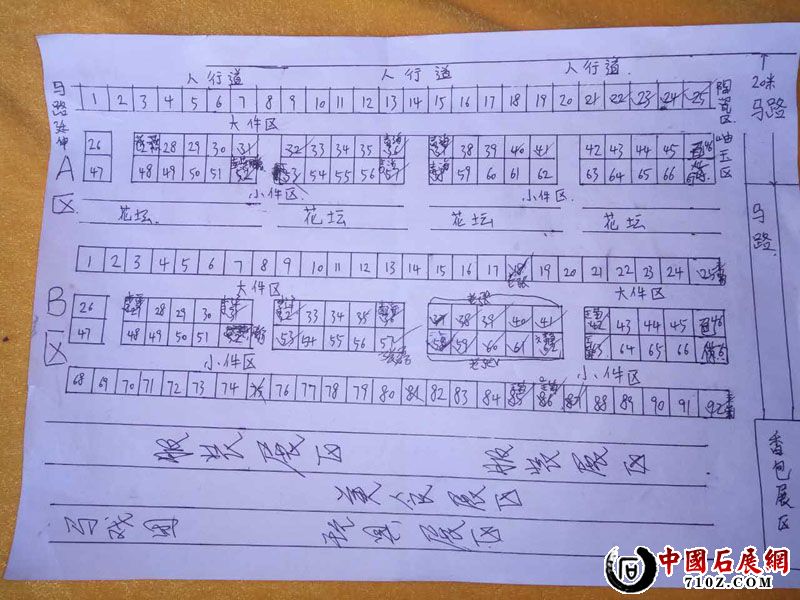 人行道 人行道 人行道
马路延伸
1 2 3 4 5 6 7 8 9 10 11 12 13 14 15 16 17 18 19 20 21 22 23 24 25
陶瓷区
20米
马路
大件区
26 28 29 30 31 32 33 34 35 36 38 39 40 41 42 43 44 45
岫玉区
A区
47 48 49 50 51 52 53 54 55 56 57 59 60 61 62 63 64 65 66
小件区 小件区
花坛 花坛 花坛 花坛
马路
1 2 3 4 5 6 7 8 9 10 11 12 13 14 15 16 17 18 19 20 21 22 23 24 25
大件区 大件区
B区
26 28 29 30 33 34 35 37 38 39 40 41 43 44 45
47 48 49 50 51 53 54 55 56 57 58 59 60 61 64 65 66
小件区 小件区
68 69 70 71 72 73 74 75 76 77 78 79 80 81 82 83 84 85 86 87 88 89 90 91 92
服装展区 服装展区
香包展区
美食展区
马戏团 玩具展区
中國石展網
71OZ.COM